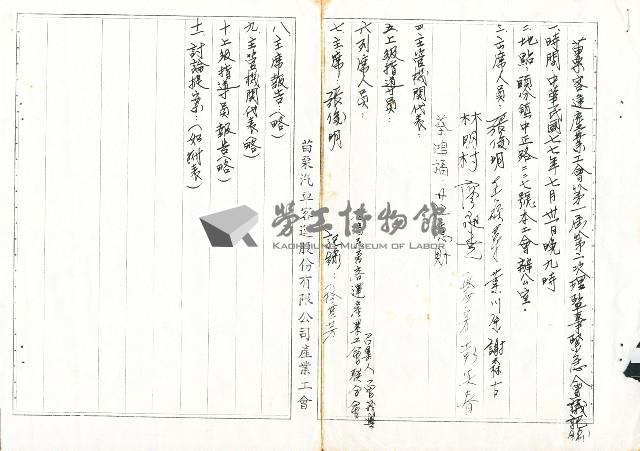 苗栗客運產業工會第一屆第二次理監事緊急會議記錄
一時間：中華民國七七年七月卅日晚九時
二地點：頭份鎮中正路二二七號本工會辦公室。
三、出席人員：張俊明 葉川 謝森吉
林明村
四主管機關代表
五上級指導員：
六列席人員：
召集人
客運產業工會聯合會
七主席：張俊明
記錄：徐
苗栗汽車客運股份有限公司產業工會
八主席報告(略)
九主管機關代表(略)
十上級指導員報告(略)
十一討論提案：(如附表)
勞工博物館
KAOHSIUNG MUSEUM OF LABOR